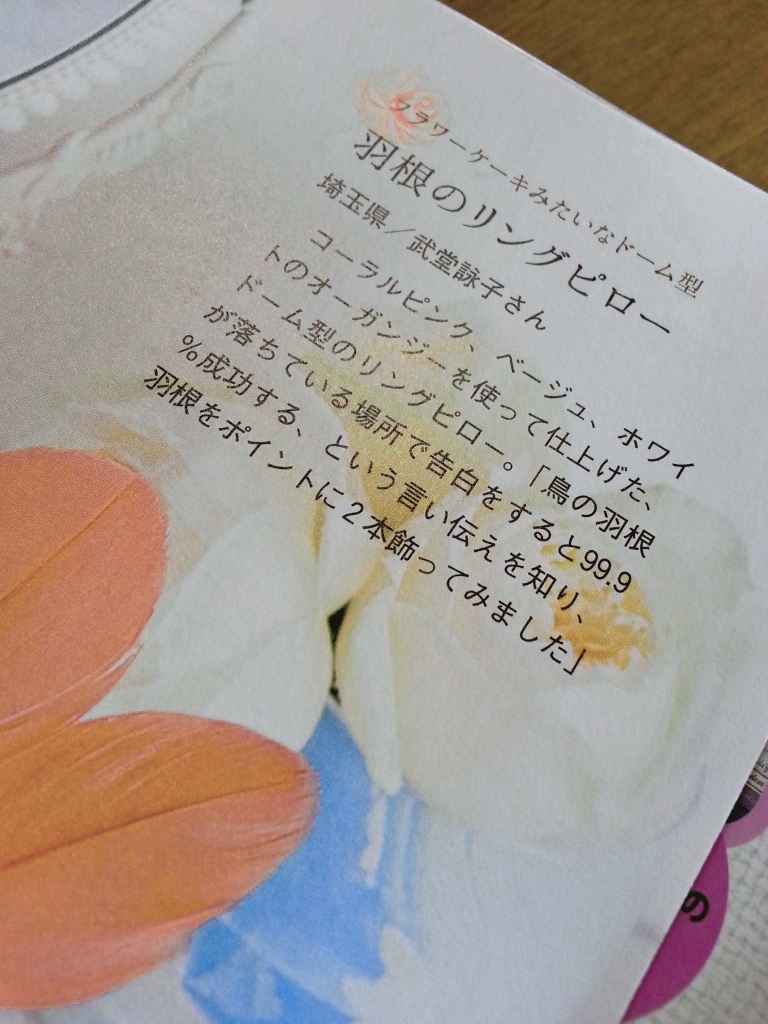 フラワーケーキみたいなドーム型
羽根のリングピロー
埼玉県／武堂詠子さん
コーラルピンク、ベージュ、ホワイ
トのオーガンジーを使って仕上げた、
ドーム型のリングピロー。「鳥の羽根
が落ちている場所で告白をすると99.9
%成功する、という言い伝えを知り、
羽根をポイントに2本飾ってみました」
の